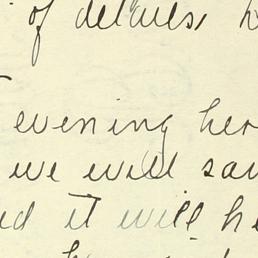 of details, h
evening her
we will sav
d it will he